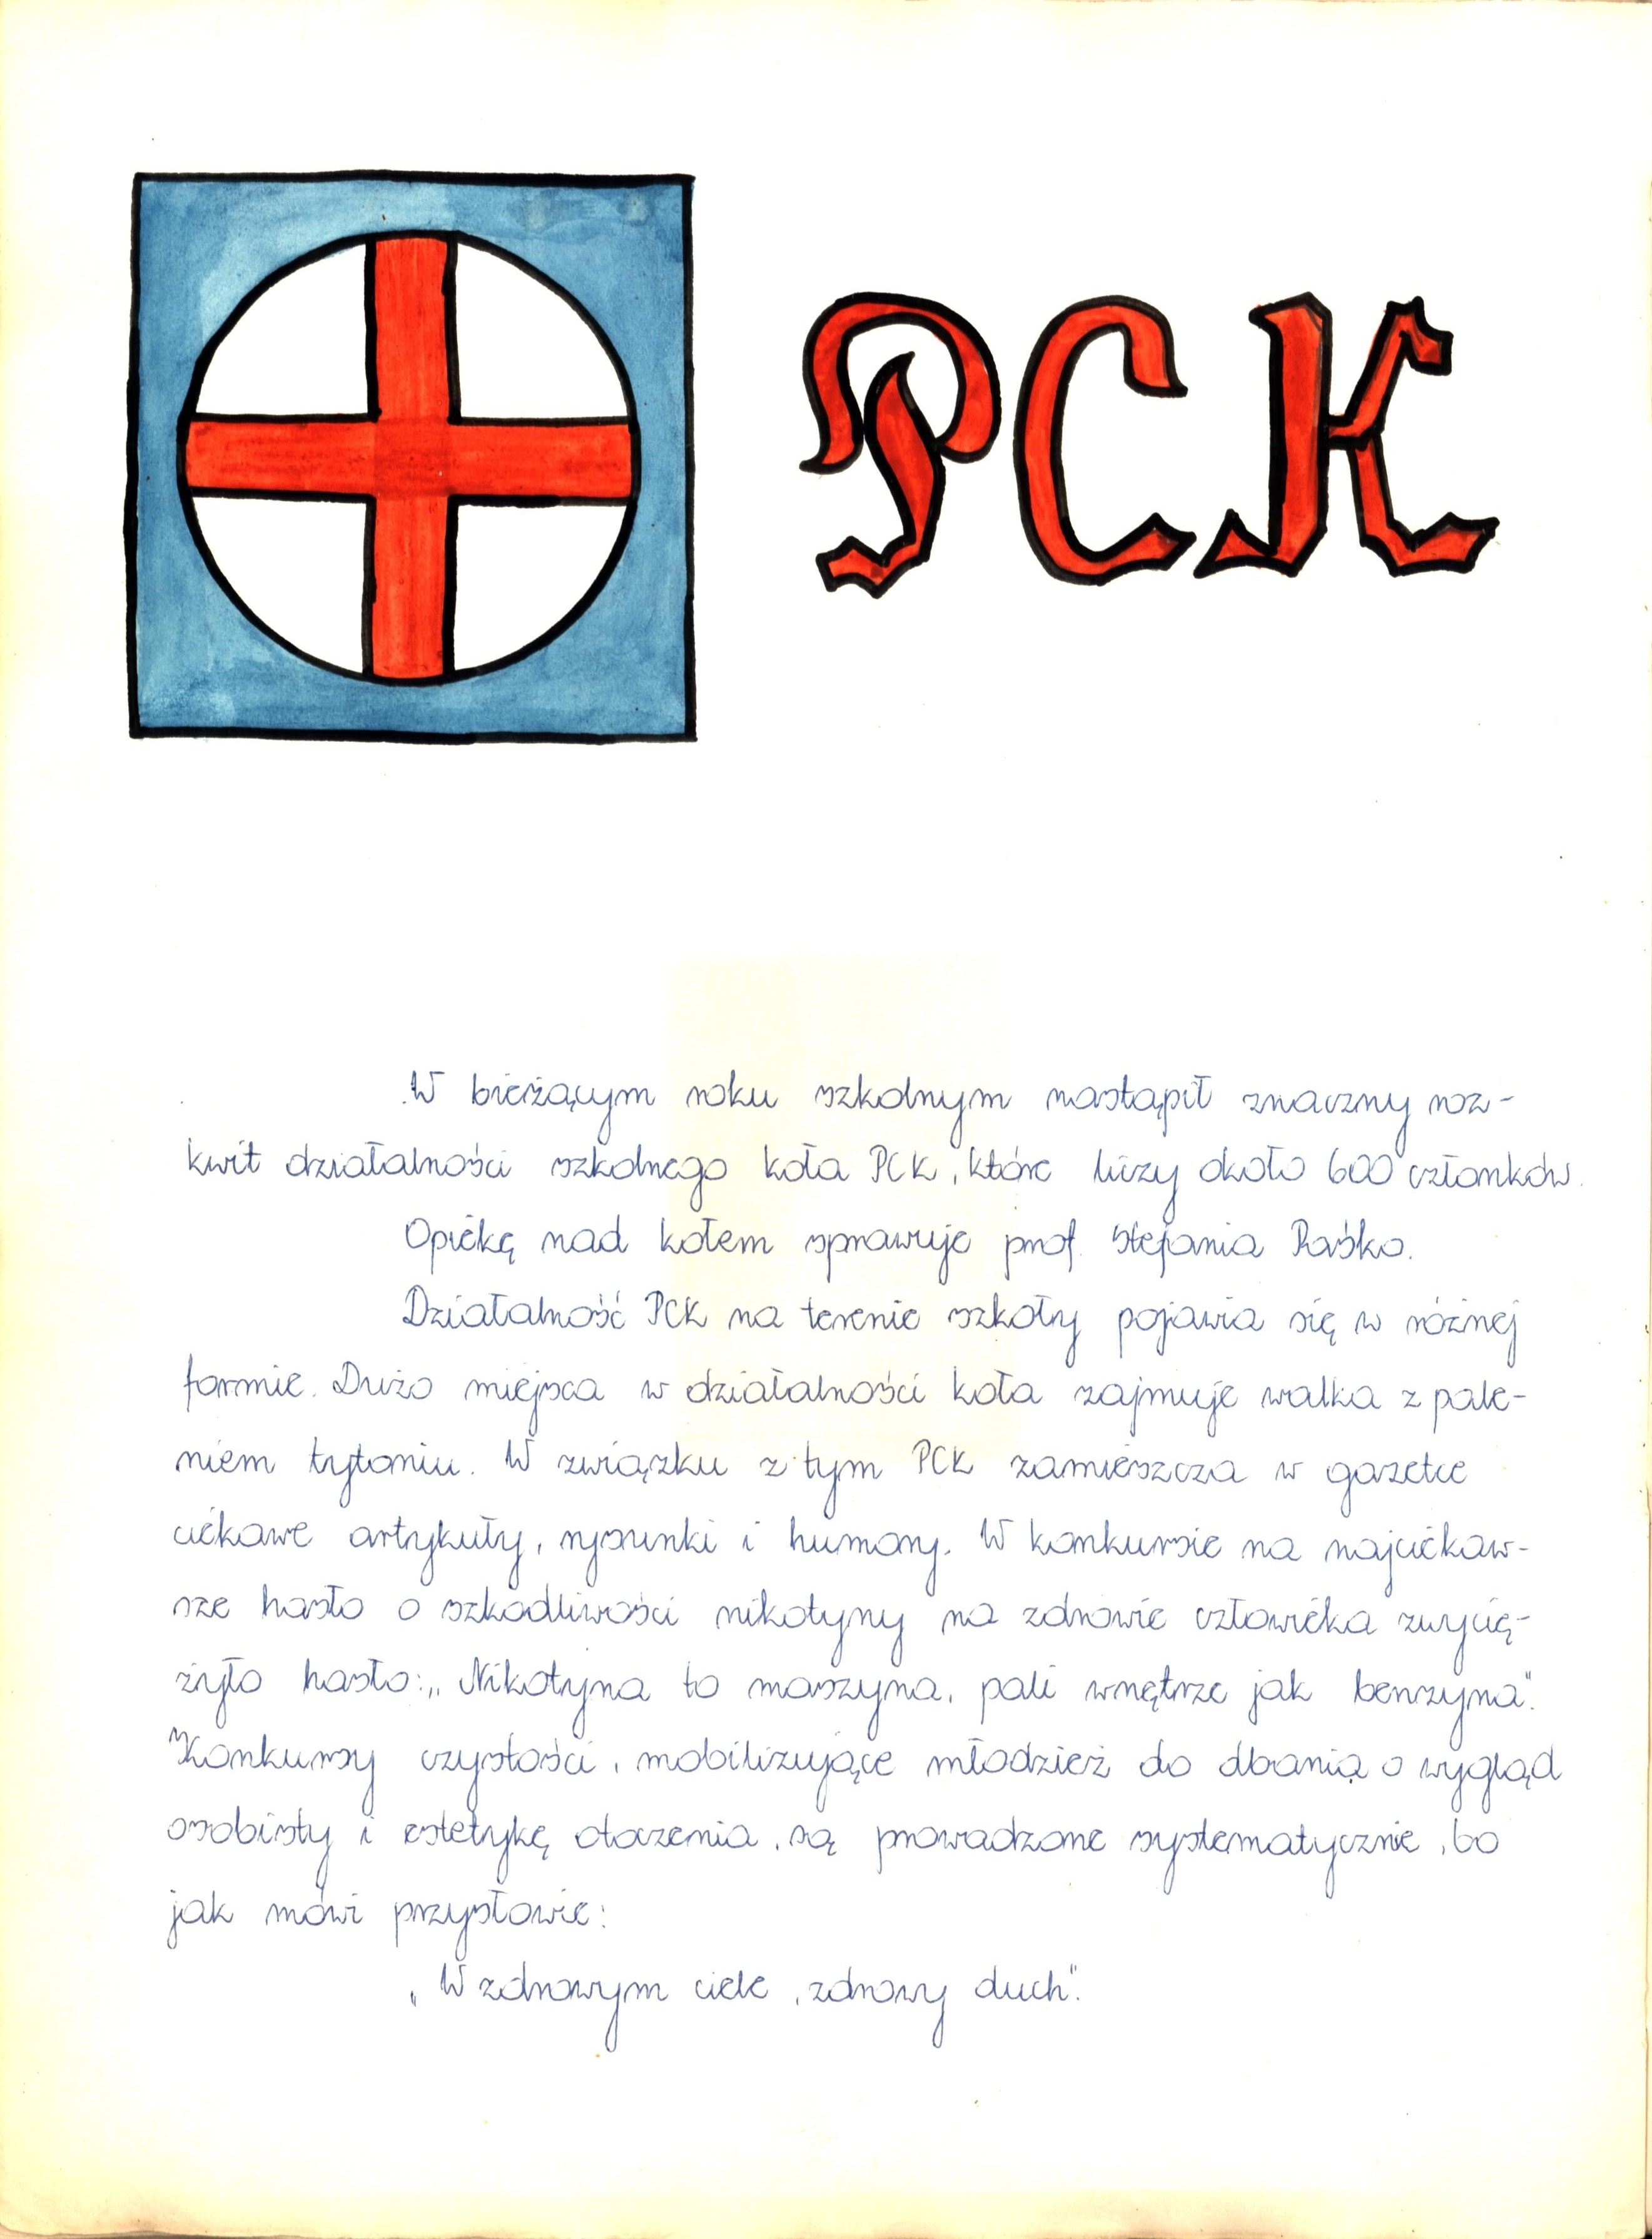 PCK
W bieżącym roku szkolnym nastąpił znaczny roz-
kwit działalności szkolnego koła PCK, które liczy około 600 członków.
Opiekę nad kołem sprawuje prof. Stefania Raśko.
Działalność PCK na terenie szkoły pojawia się w różnej
formie. Dużo miejsca w działalności koła zajmuje walka z pale-
niem tytoniu. W związku z tym PCK zamieszcza w gazetce
ciekawe artykuły, rysunki i humory. W konkursie na najciekaw-
sze hasło o szkodliwości nikotyny na zdrowie człowieka zwycię-
żyło hasło: „Nikotyna to maszyna, pali wnętrze jak benzyna".
Konkursy czystości, mobilizujące młodzież do dbania o wygląd
osobisty i estetykę otoczenia, są prowadzone systematycznie, bo
jak mówi przysłowie:
„W zdrowym ciele, zdrowy duch".